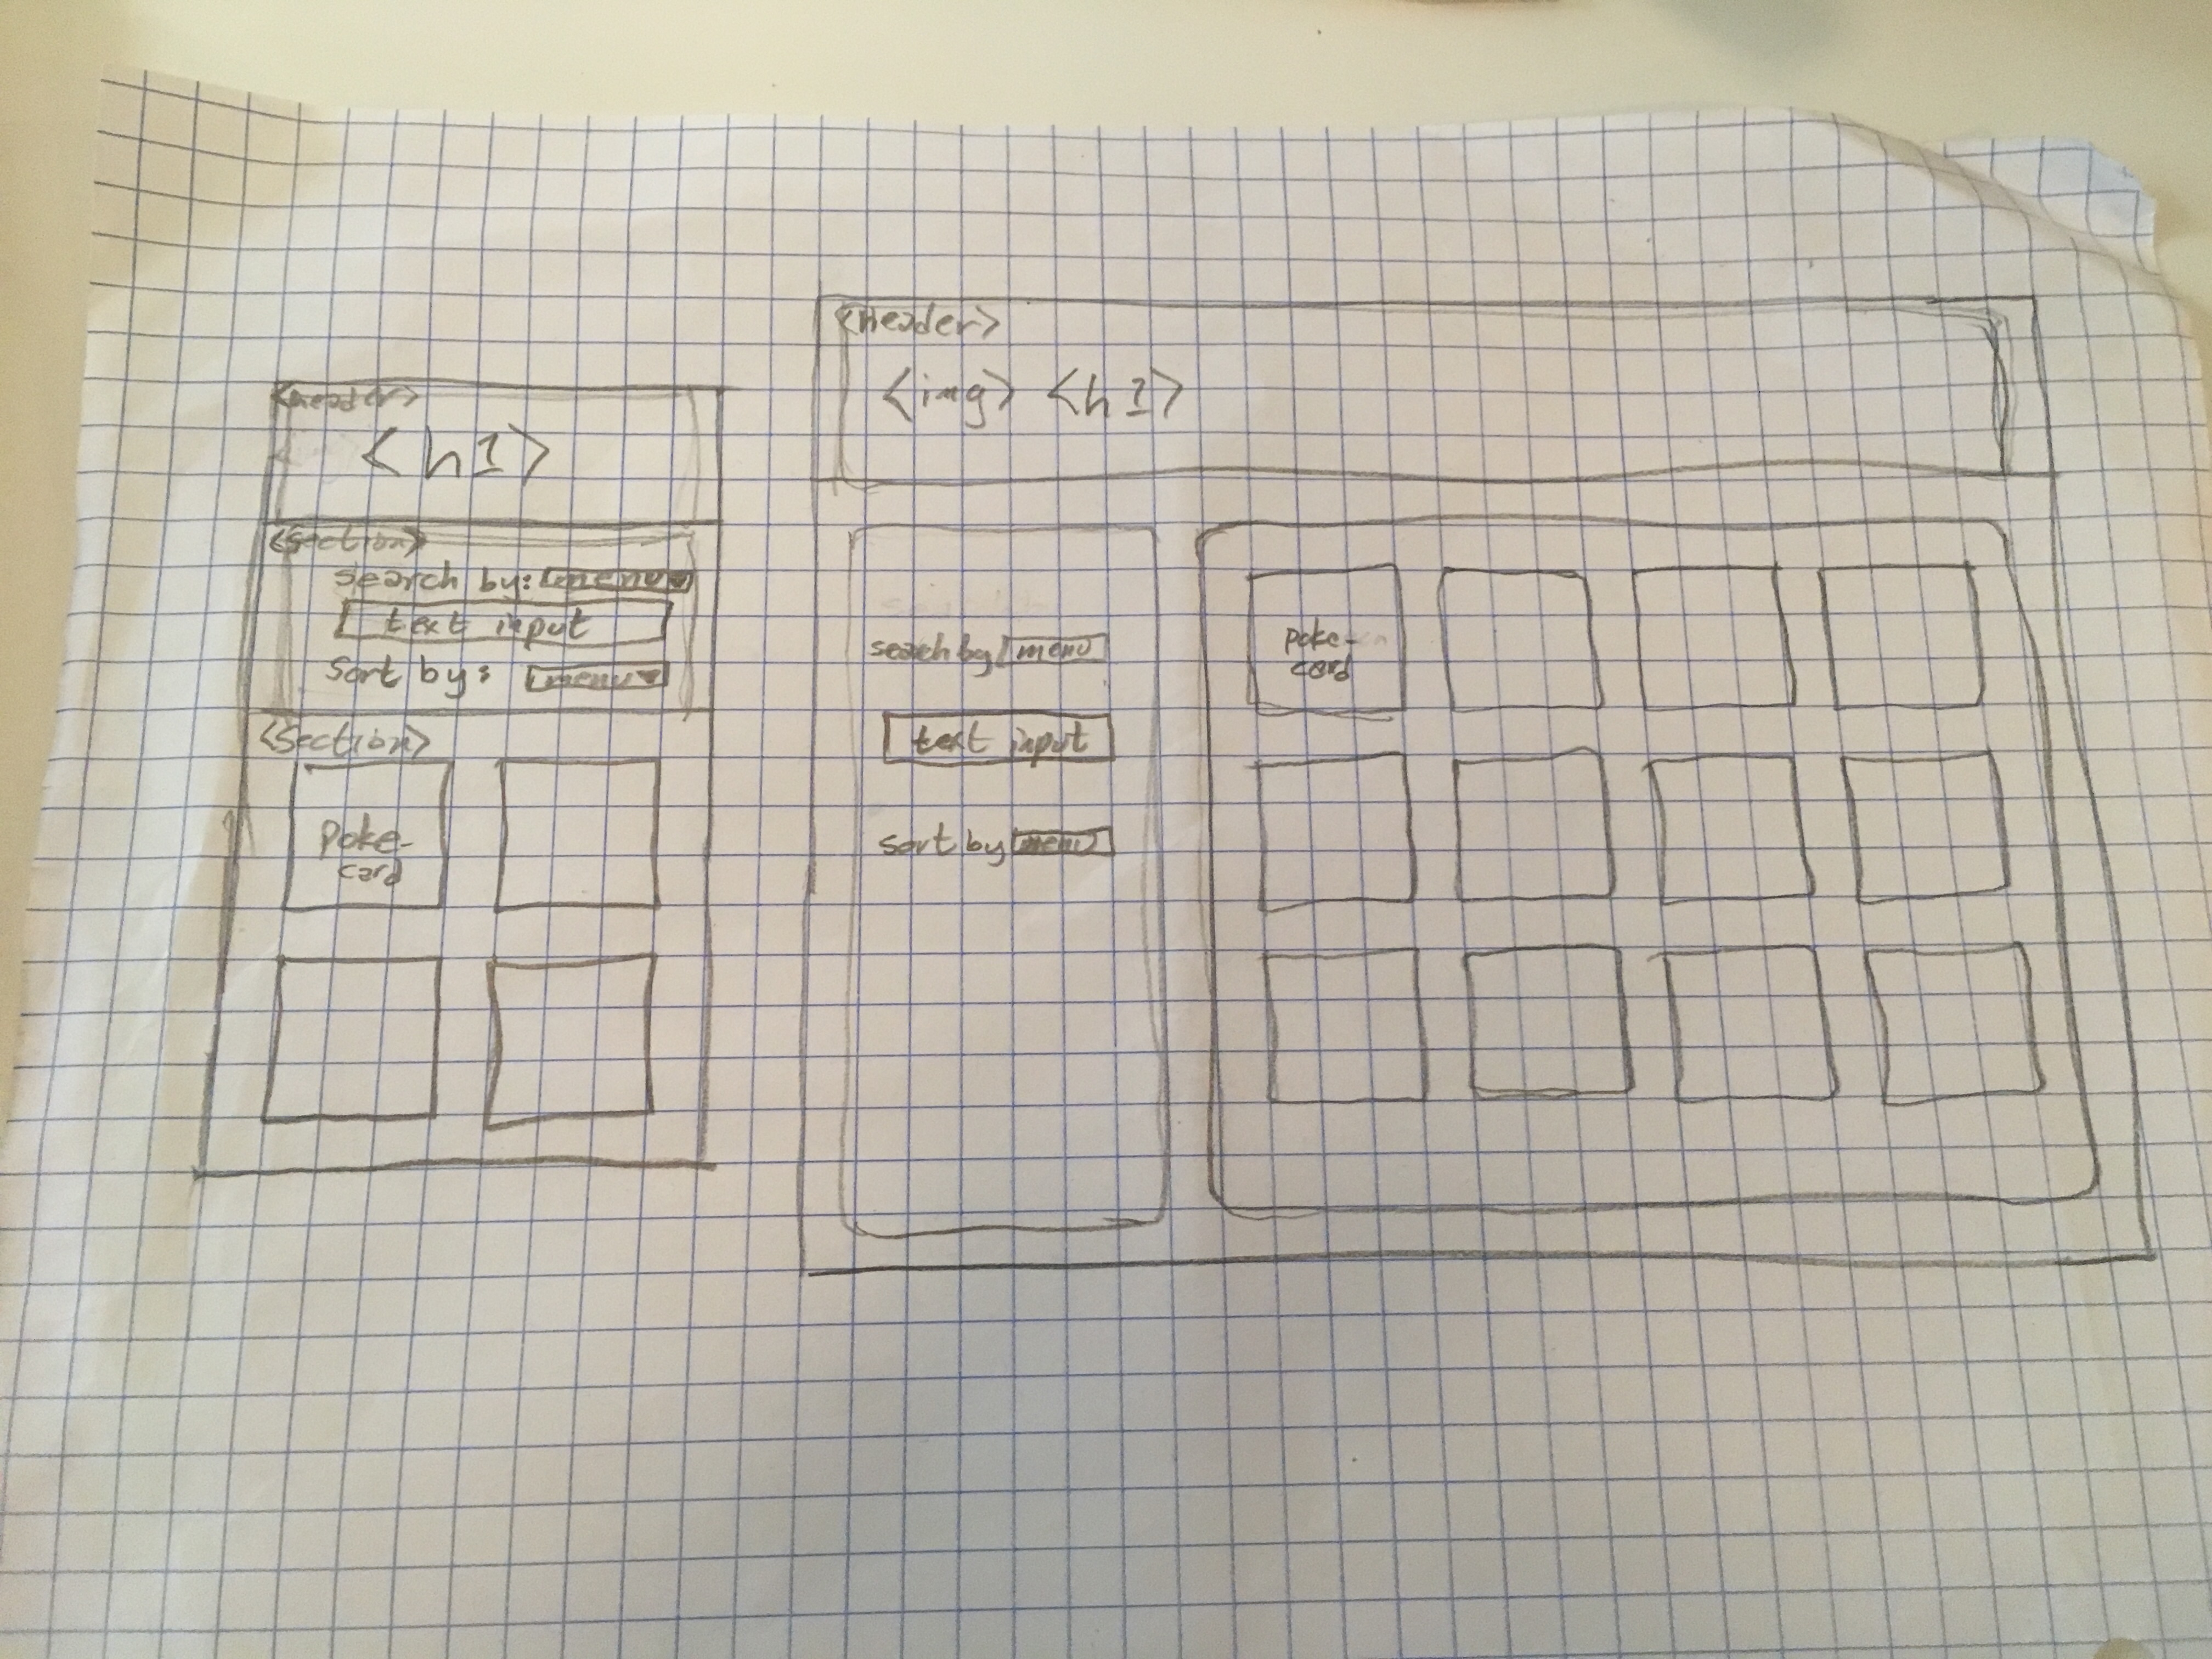 <header>
<h1>
<section>
search by: menu
text input
sort by: menu
<section>
poke-
card
<header>
<img> <h1>
search by menu
text input
sort by menu
poke-
card